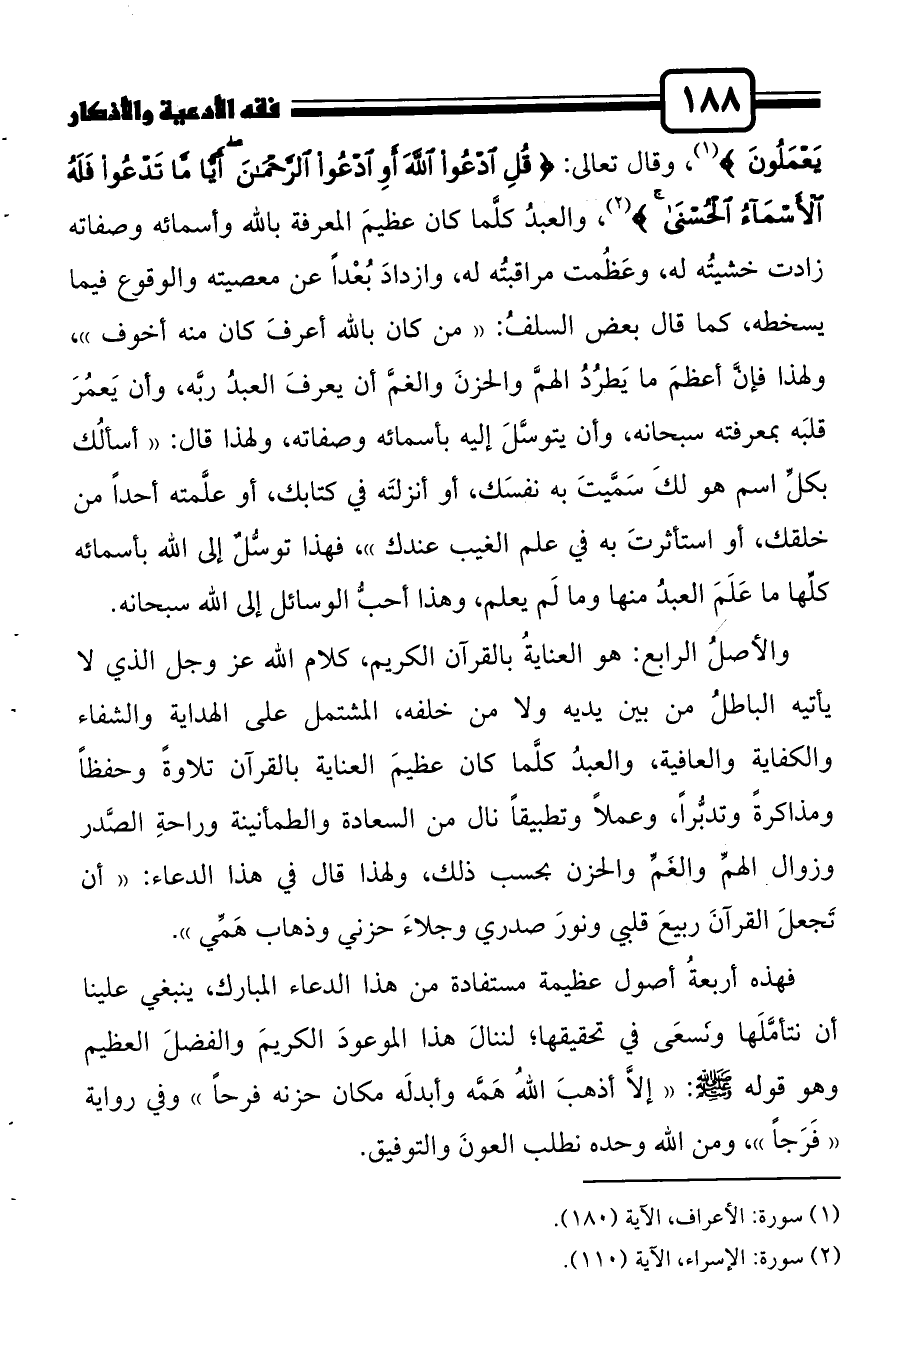 ١٨٨ فقه الأدعية والأذكار
يَعْمَلُونَ ﴾(١)، وقال تعالى: ﴿ قُلِ ٱدْعُوا۟ ٱللَّهَ أَوِ ٱدْعُوا۟ ٱلرَّحْمَـٰنَ ۖ أَيًّا مَّا تَدْعُوا۟ فَلَهُ
ٱلْأَسْمَآءُ ٱلْحُسْنَىٰ ۚ ﴾(٢)، والعبدُ كلَّما كان عظيمَ المعرفة بالله وأسمائه وصفاته
زادت خشيتُه له، وعَظُمت مراقبتُه له، وازدادَ بُعْداً عن معصيته والوقوع فيما
يسخطه، كما قال بعض السلفُ: « من كان بالله أعرفَ كان منه أخوف »،
ولهذا فإنَّ أعظمَ ما يَطرُدُ الهمَّ والحزنَ والغمَّ أن يعرفَ العبدُ ربَّه، وأن يَعمُرَ
قلبَه بمعرفته سبحانه، وأن يتوسَّلَ إليه بأسمائه وصفاته، ولهذا قال: « أسألُك
بكلِّ اسم هو لكَ سَمَّيتَ به نفسَك، أو أنزلتَه في كتابك، أو علَّمته أحداً من
خلقك، أو استأثرتَ به في علم الغيب عندك »، فهذا توسُّلٌ إلى الله بأسمائه
كلِّها ما عَلَمَ العبدُ منها وما لَم يعلم، وهذا أحبُّ الوسائل إلى الله سبحانه.
والأصلُ الرابع: هو العنايةُ بالقرآن الكريم، كلام الله عز وجل الذي لا
يأتيه الباطلُ من بين يديه ولا من خلفه، المشتمل على الهداية والشفاء
والكفاية والعافية، والعبدُ كلَّما كان عظيمَ العناية بالقرآن تلاوةً وحفظاً
ومذاكرةً وتدبُّراً، وعملاً وتطبيقاً نال من السعادة والطمأنينة وراحةِ الصَّدر
وزوال الهمِّ والغَمِّ والحزن بحسب ذلك، ولهذا قال في هذا الدعاء: « أن
تَجعلَ القرآنَ ربيعَ قلبي ونورَ صدري وجلاءَ حزني وذهاب هَمِّي ».
فهذه أربعةُ أصول عظيمة مستفادة من هذا الدعاء المبارك، ينبغي علينا
أن نتأمَّلَها ونَسعَى في تحقيقها؛ لننالَ هذا الموعودَ الكريمَ والفضلَ العظيم
وهو قوله ﷺ: « إلاَّ أذهبَ اللهُ هَمَّه وأبدلَه مكان حزنه فرحاً » وفي رواية
« فَرَجاً »، ومن الله وحده نطلب العونَ والتوفيق.
(١) سورة: الأعراف، الآية (١٨٠).
(٢) سورة: الإسراء، الآية (١١٠).